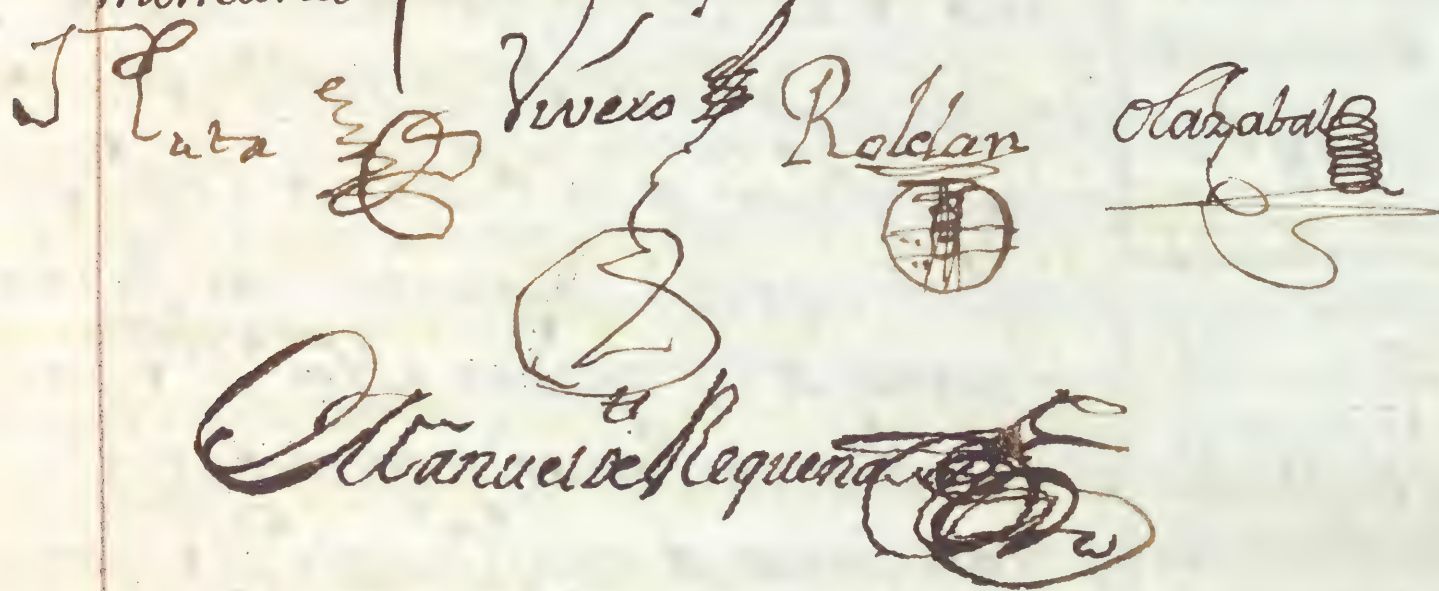 Vivero Roldan Olazabal
Manuel de Requena